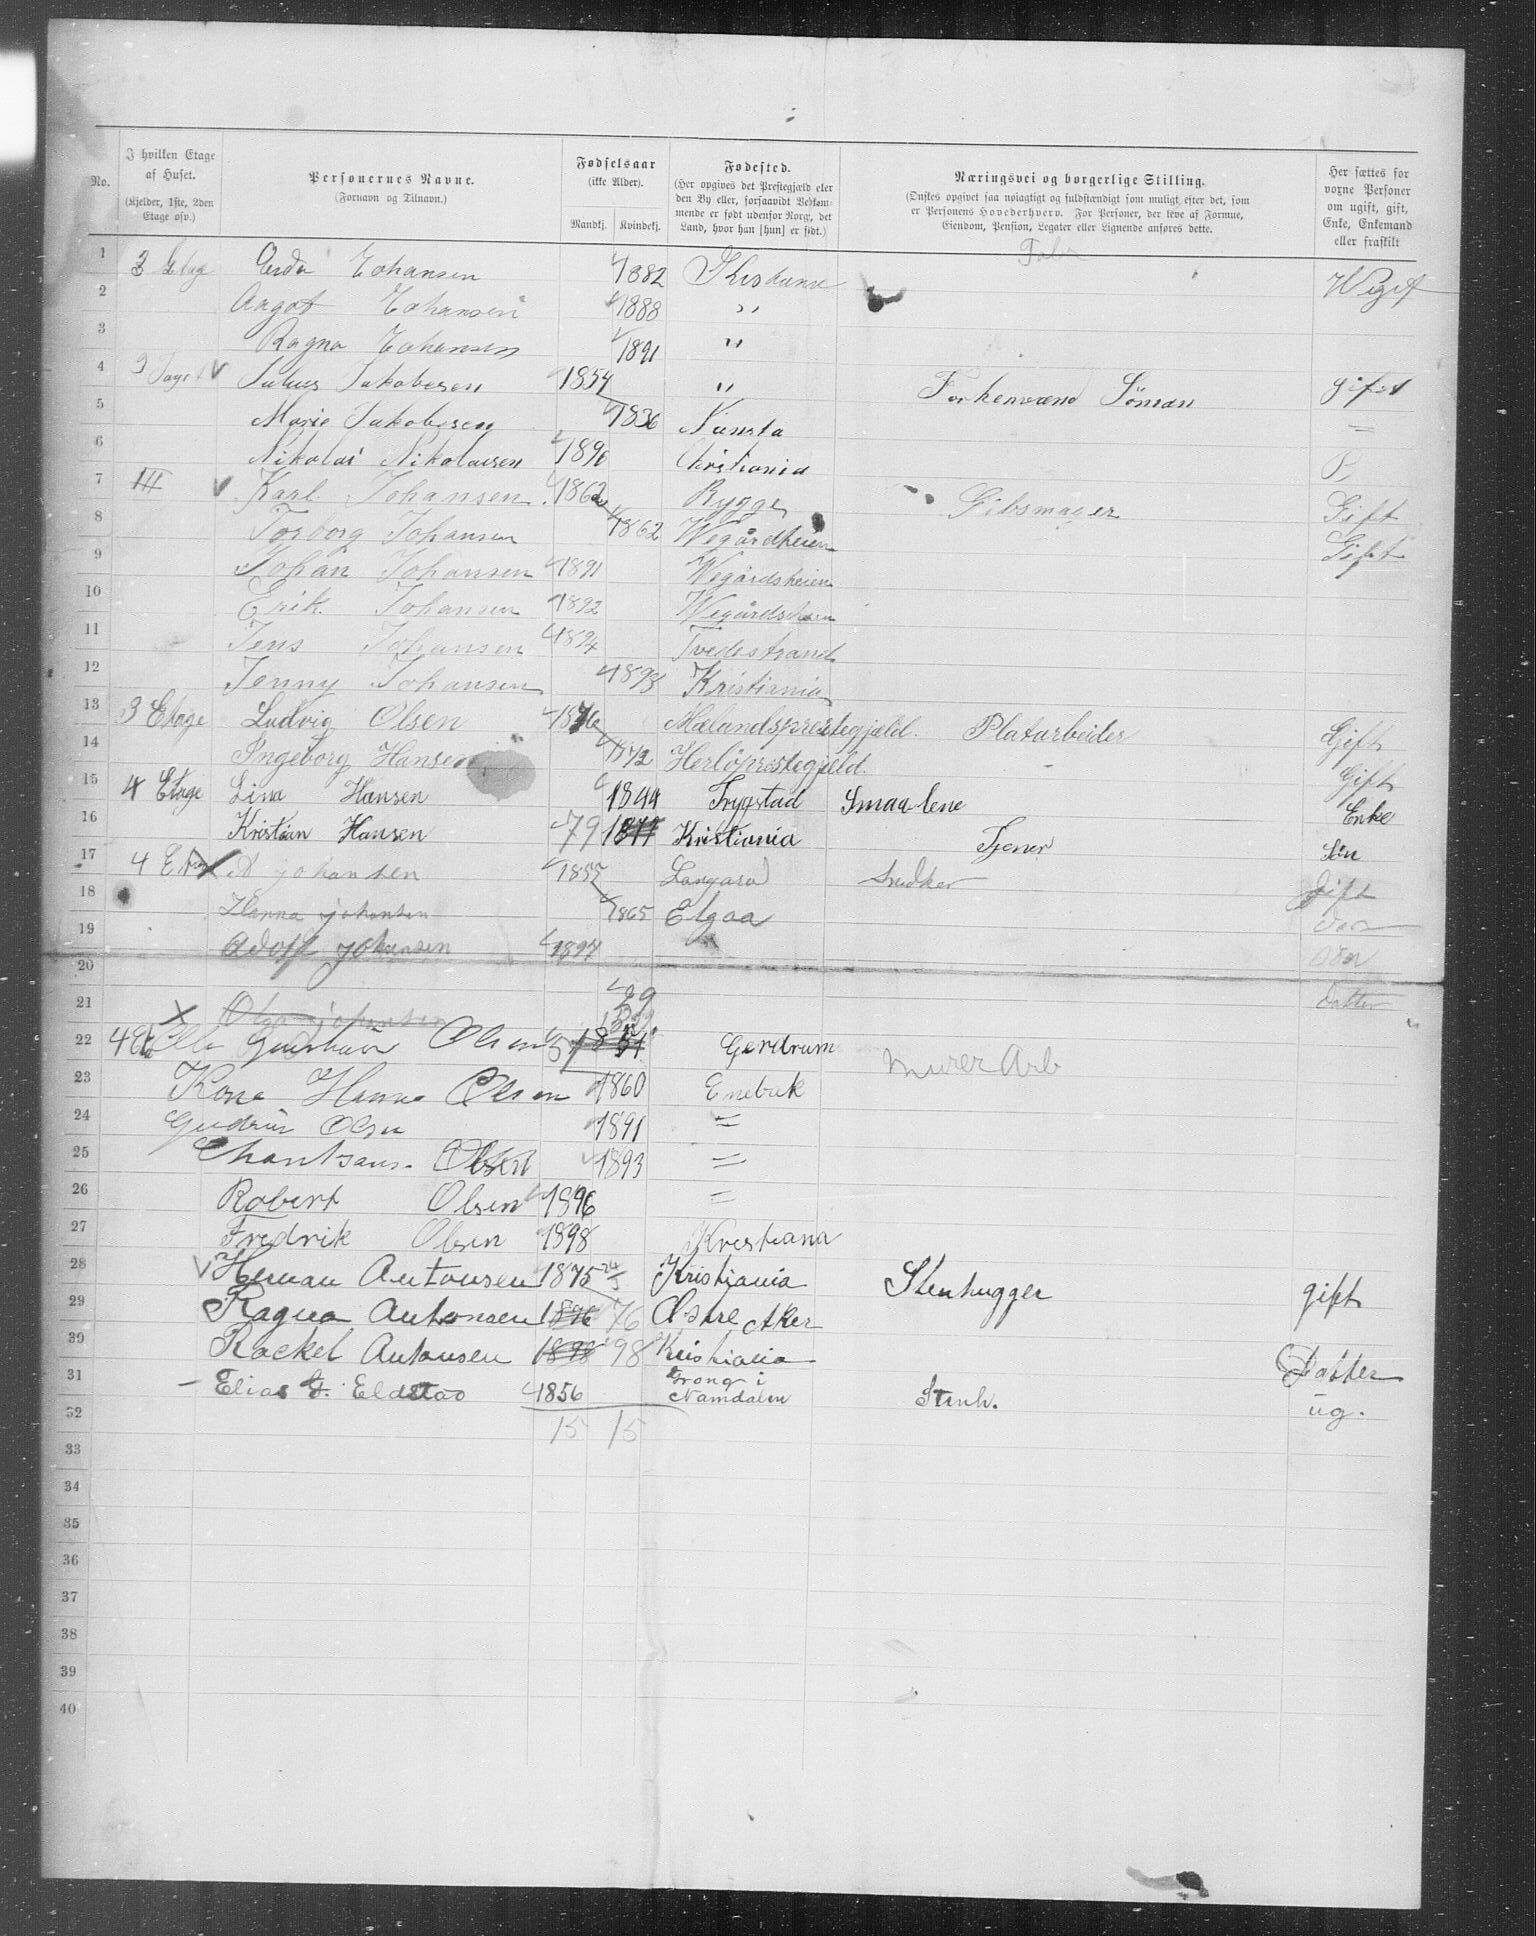 No.
I hvilken Etage af Huset. (Kjelder, 1ste, 2den Etage osv.)
Personernes Navne. (Fornavn og Tilnavn.)
Fødselsaar (ikke Alder). Mandkj. Kvindekj.
Fødested. (Her opgives det Prestegjæld eler den By eller, forsaavidt Vedkommende er født udenfor Norge, det Land, hvor han [hun] er født.)
Næringsvei og borgerlige Stilling. (Ønskes opgivet saa nøiagtigt og fuldstændigt som muligt efter det, som er Personens Hovederhverv. For Personer, der leve af Formue, Eiendom, Pension, Legater eller Lignende anføres dette.
Her sættes for voxne Personer om ugift, gift, Enke, Enkemand eller fraskilt
1 3 Etag Johansen 1882
2 Johansen 1888 "
3 Ragna Johansen 1891 "
4 Jakobsen 1854 " Söman gift
5 Marie Jakobsen 1836
6 Nikolai Nikolaisen 1890 Christiania
7 III Karl Johansen 1862 Rygge Gibsmager Gift
8 Torborg Johansen 1862 Wegårdheien Gift
9 Johan Johansen 1891 Wegårdsheien
10 Erik Johansen 1892
11 Jens Johansen 1894 Tvedestrand
12 Jenny Johansen 1898 Kristiania
13 3 Etage Ludvig Olsen 1876 Mælandsprestegjæld. Platarbeider Gift
14 Ingeborg Hansen 1872 Herlöprestegjæld. Gift
15 4 Etage Lina Hansen 1844 Trygstad Smaalene Enke
16 Kristian Hansen 79 1877 Kristiania Tjener Sön
17 4 Johansen 1855 Snedker Gift
18 Hanna Johansen 1865 Elgaa
19 Adolf Johansen 1897 Sön
20
21 Olga Johansen 99 Datter
22 4 Et Olsen 51 1851 Gerdrum Murer Arb
23 Hanna Olsen 1860 Enebak
24 Gudrun Olsen 1891 =
25 Olsen 1893 =
26 Robert Olsen 1896 =
27 Fredrik Olsen 1898 Kristiana
28 Herman Antonsen 1875 24/5 Kristiania Stenhugger gift
29 Ragna Antonsen 1876 76 Østre Aker
30 Rackel Antonsen 1898 98 Kristiania Datter
31 Elias G. Eldstao 1856 Grong i Namdalen Stenh. ug.
32 15 15
33
34
35
36
37
38
39
40